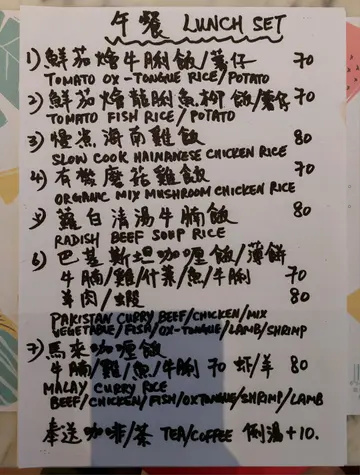 午餐 LUNCH SET
1) 鮮茄燴牛脷飯/薯仔 70
TOMATO OX-TONGUE RICE/POTATO
2) 鮮茄燴龍脷魚柳飯/薯仔 70
TOMATO FISH RICE/POTATO
3) 慢煮海南雞飯 80
SLOW COOK HAINANESE CHICKEN RICE
4) 有機磨菇雞飯 70
ORGANIC MIX MUSHROOM CHICKEN RICE
5) 蘿白清湯牛腩飯 80
RADISH BEEF SOUP RICE
6) 巴基斯坦咖喱飯/薄餅
牛腩/雞/什菜/魚/牛脷 70
羊肉/蝦 80
PAKISTAN CURRY BEEF/CHICKEN/MIX
VEGETABLE/FISH/OX-TONGUE/LAMB/SHRIMP
7) 馬來咖喱飯
牛腩/雞/魚/牛脷 70 虾/羊 80
MALAY CURRY RICE
BEEF/CHICKEN/FISH/OXTONGUE/SHRIMP/LAMB
奉送咖啡/茶 TEA/COFFEE 例湯+10.